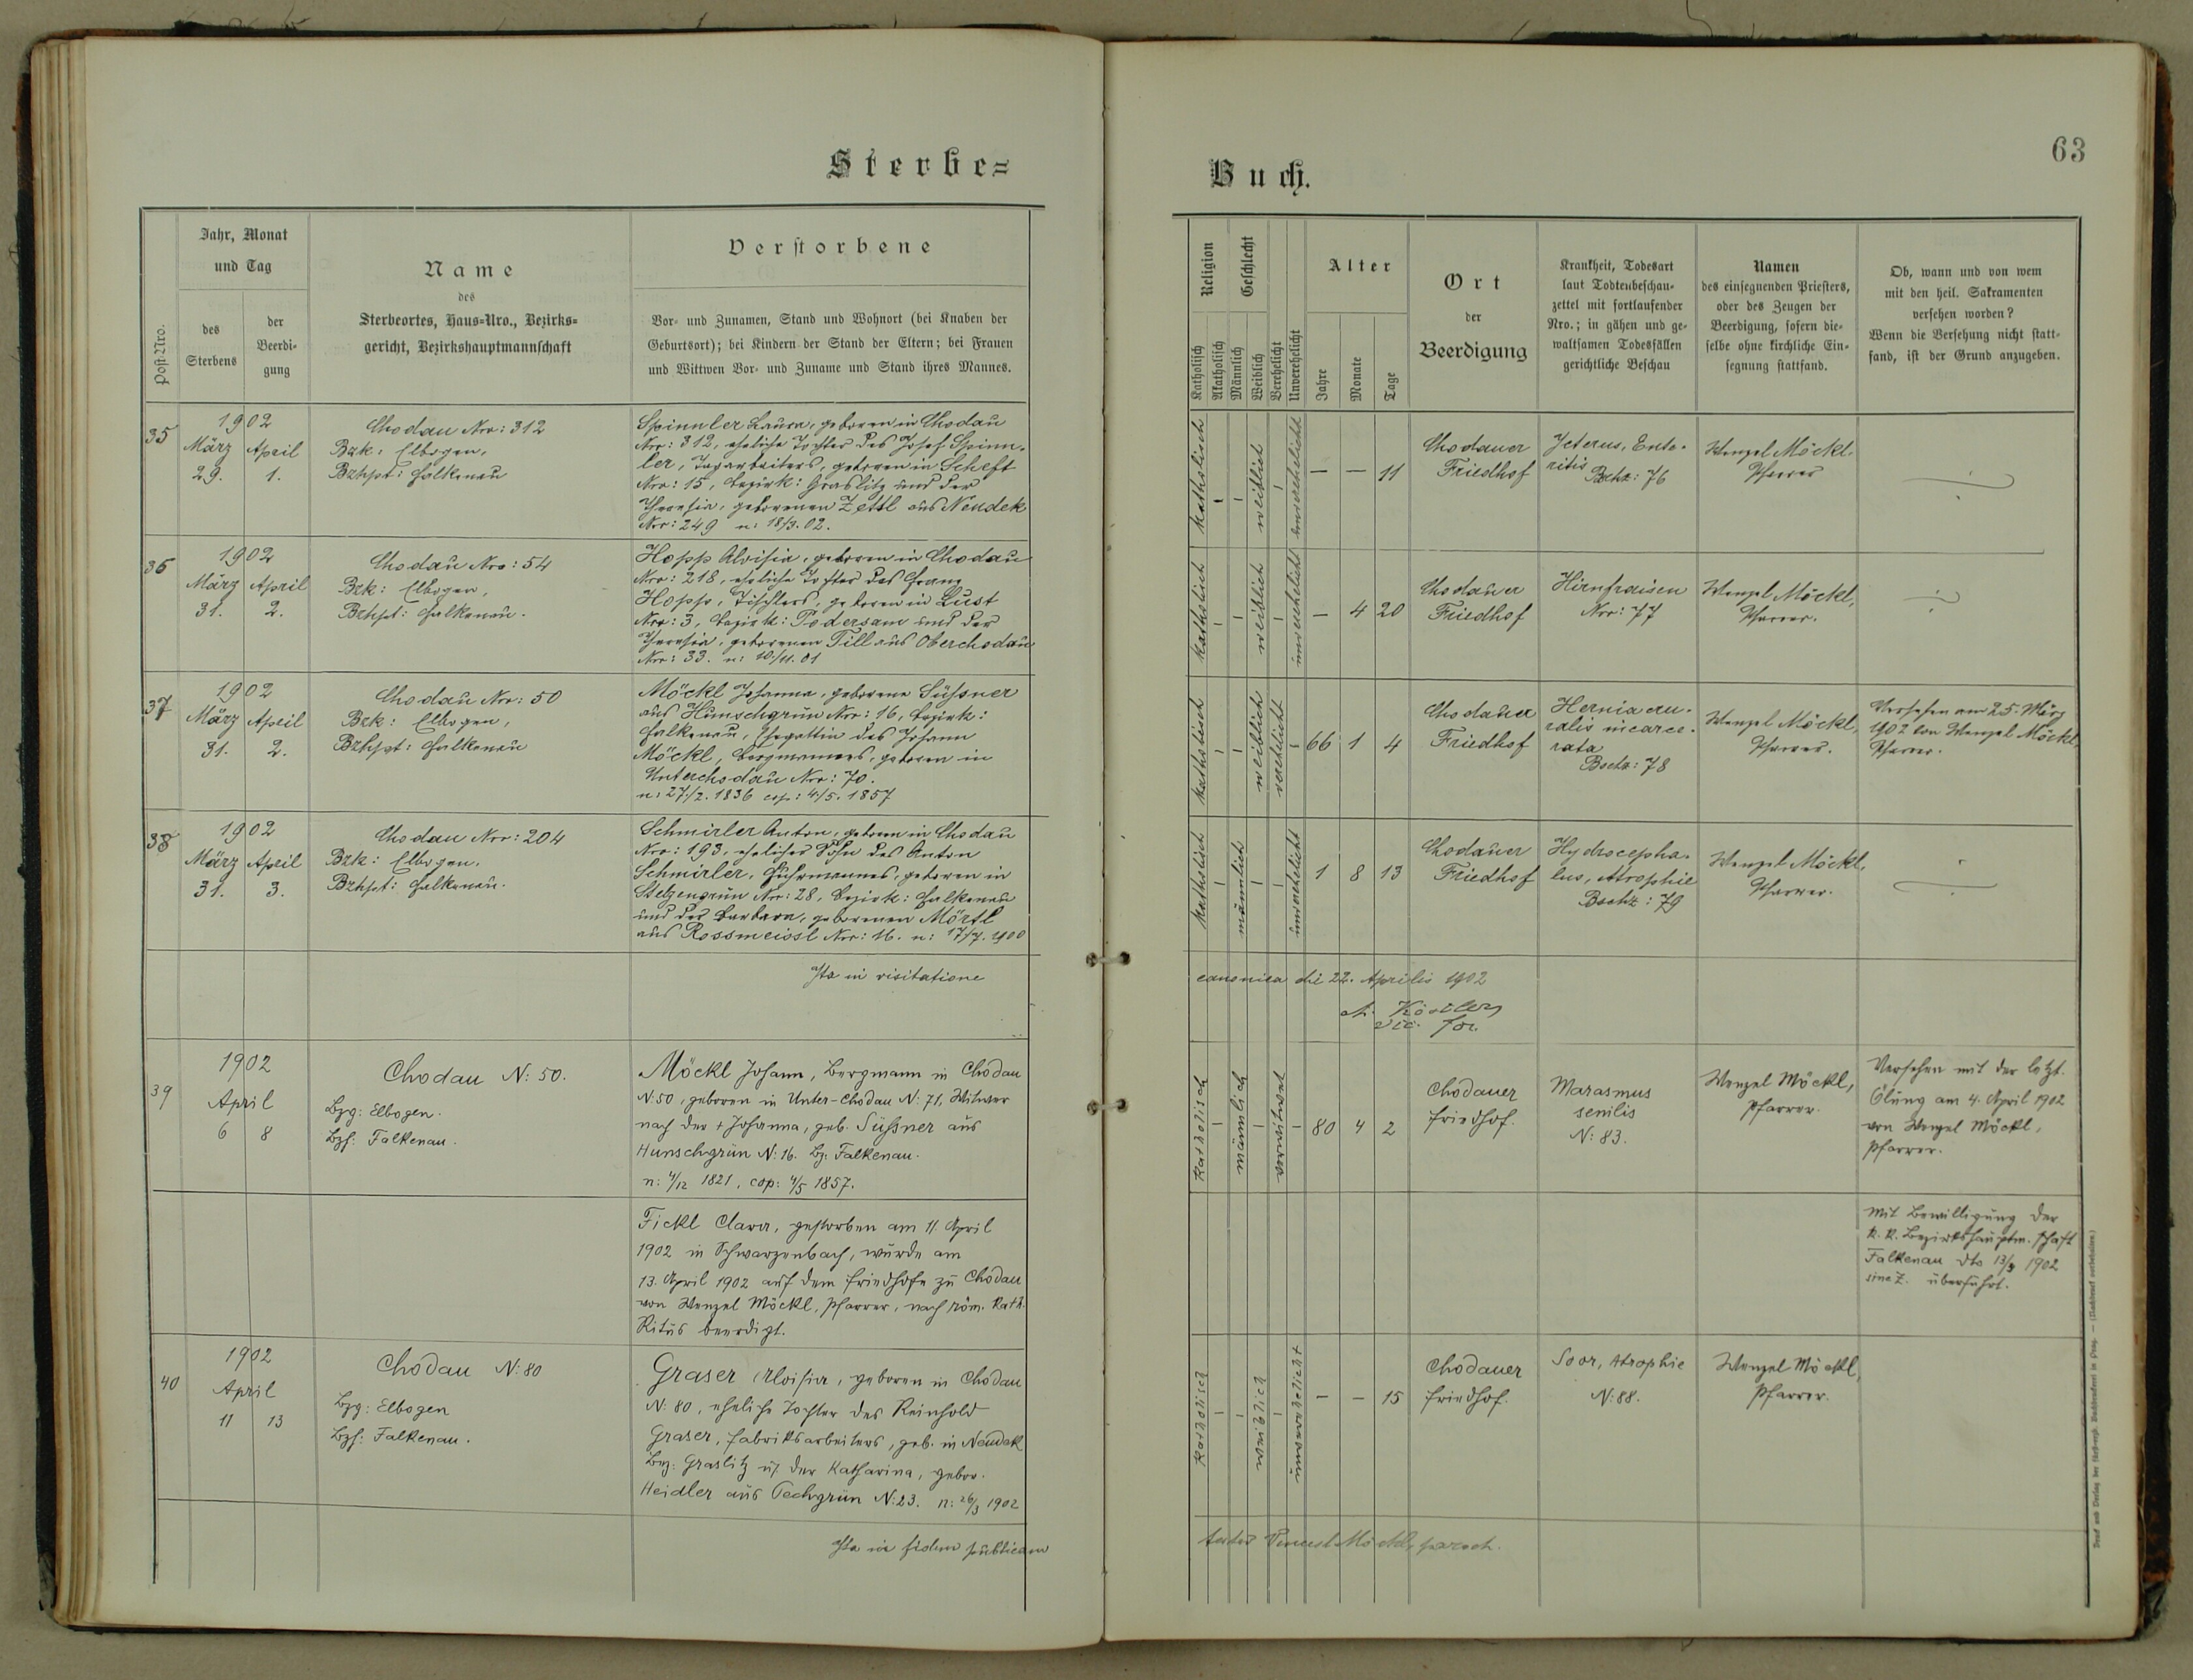 Sterbe=
Buch.
63
Post-Nro.
Jahr, Monat
und Tag
des
Sterbens
der
Beerdi-
gung
Name
des
Sterbeortes, Haus-Nro., Bezirks=
gericht, Bezirkshauptmannschaft
Verstorbene
Vor- und Zunamen, Stand und Wohnort (bei Knaben der
Geburtsort); bei Kindern der Stand der Eltern; bei Frauen
und Wittwen Vor- und Zuname und Stand ihres Mannes.
Religion
Katholisch
Akatholisch
Geschlecht
Männlich
Weiblich
Verehelicht
Unverehelicht
Alter
Jahre
Monate
Tage
Ort
der
Beerdigung
Krankheit, Todesart
laut Todtenbeschau-
zettel mit fortlaufender
Nro.; in gähen und ge-
waltsamen Todesfällen
gerichtliche Beschau
Namen
des einsegnenden Priesters,
oder des Zeugen der
Beerdigung, sofern die-
selbe ohne kirchliche Ein-
segnung stattfand.
Ob, wann und von wem
mit den heil. Sakramenten
versehen worden?
Wenn die Versehung nicht statt-
fand, ist der Grund anzugeben.
35
1902
März April
29. 1.
Chodau Nro: 312
Bzk: Elbogen,
Bzhpt: Falkenau
Spinnler Laura, geboren in Chodau
Nro: 312, eheliche Tochter des Josef Spinn-
ler, Tagarbeiters, geboren in Scheft
Nro: 15, Bezirk: Graslitz und der
Theresia, geborenen Zettl aus Neudek
Nro: 249 n: 18/3. 02.
katholisch
weiblich
unverehelicht
— — 11
Chodauer
Friedhof
Jcterus, Ente-
ritis
Bschz: 76
Wenzel Möckl,
Pfarrer
36
1902
März April
31. 2.
Chodau Nro: 54
Bzk: Elbogen,
Bzhpt: Falkenau.
Hopp Aloisia, geboren in Chodau
Nro: 218, eheliche Tochter des Franz
Hopp, Tischlers, geboren in Lust
Nro: 3, Bezirk: Podersam und der
Theresia, geborenen Till aus Oberchodau
Nro: 33. n: 10/11. 01
katholisch
weiblich
unverehelicht
— 4 20
Chodauer
Friedhof
Hirnfraisen
Nro: 77
Wenzel Möckl,
Pfarrer.
37
1902
März April
31. 2.
Chodau Nro: 50
Bzk: Elbogen,
Bzhpt: Falkenau
Möckl Johanna, geborene Süßner
aus Hunschgrün Nro: 16, Bezirk:
Falkenau, Ehegattin des Johann
Möckl, Bergmannes, geboren in
Unterchodau Nro: 70.
n: 27/2. 1836 cop: 4/5. 1857
katholisch
weiblich
verehelicht
66 1 4
Chodauer
Friedhof
Hernia cru-
ralis incarce-
rata
Bschz: 78
Wenzel Möckl,
Pfarrer.
Versehen am 25. März
1902 von Wenzel Möckl,
Pfarrer.
38
1902
März April
31. 3.
Chodau Nro: 204
Bzk: Elbogen.
Bzhpt: Falkenau.
Schmirler Anton, geboren in Chodau
Nro: 193, ehelicher Sohn des Anton
Schmirler, Fuhrmannes, geboren in
Stelzengrün Nro: 28, Bezirk: Falkenau
und der Barbara, geborenen Mörtl
aus Rossmeissl Nro: 16. n: 17/7. 1900
katholisch
männlich
unverehelicht
1 8 13
Chodauer
Friedhof
Hydrocepha-
lus, Atrophie
Bschz: 79
Wenzel Möckl,
Pfarrer.
Ita in visitatione
canonica die 22. Aprilis 1902
vic. for.
39
1902
April
6 8
Chodau N: 50.
Bzg: Elbogen.
Bzh: Falkenau.
Möckl Johann, Bergmann in Chodau
N: 50, geboren in Unter-Chodau N: 71, Witwer
nach der + Johanna, geb. Süßner aus
Hunschgrün N: 16. Bz: Falkenau.
n: 4/12 1821, cop: 4/5 1857.
katholisch
männlich
verwitwet
80 4 2
Chodauer
Friedhof.
Marasmus
senilis
N: 83.
Wenzel Möckl,
Pfarrer.
Versehen mit der letzt.
Ölung am 4. April 1902
von Wenzel Möckl,
Pfarrer.
Fickl Clara, gestorben am 11 April
1902 in Schwarzenbach, wurde am
13. April 1902 auf dem Friedhofe zu Chodau
von Wenzel Möckl, Pfarrer, nach röm. kath.
Ritus beerdigt.
Mit Bewilligung der
k. k. Bezirkshauptm.schaft
Falkenau dto 1902
überführt.
40
1902
April
11 13
Chodau N: 80
Bzg: Elbogen
Bzh: Falkenau.
Graser Aloisia, geboren in Chodau
N: 80, eheliche Tochter des Reinhold
Graser, Fabriksarbeiters, geb. in Neudek
Bez: Graslitz u. der Katharina, gebor.
Heidler aus Pechgrün N: 23. n: 26/3 1902
katholisch
weiblich
unverehelicht
— — 15
Chodauer
Friedhof.
Soor, Atrophie
N: 88.
Wenzel Möckl,
Pfarrer.
Ita in fidem publicam
Möckl, paroch.